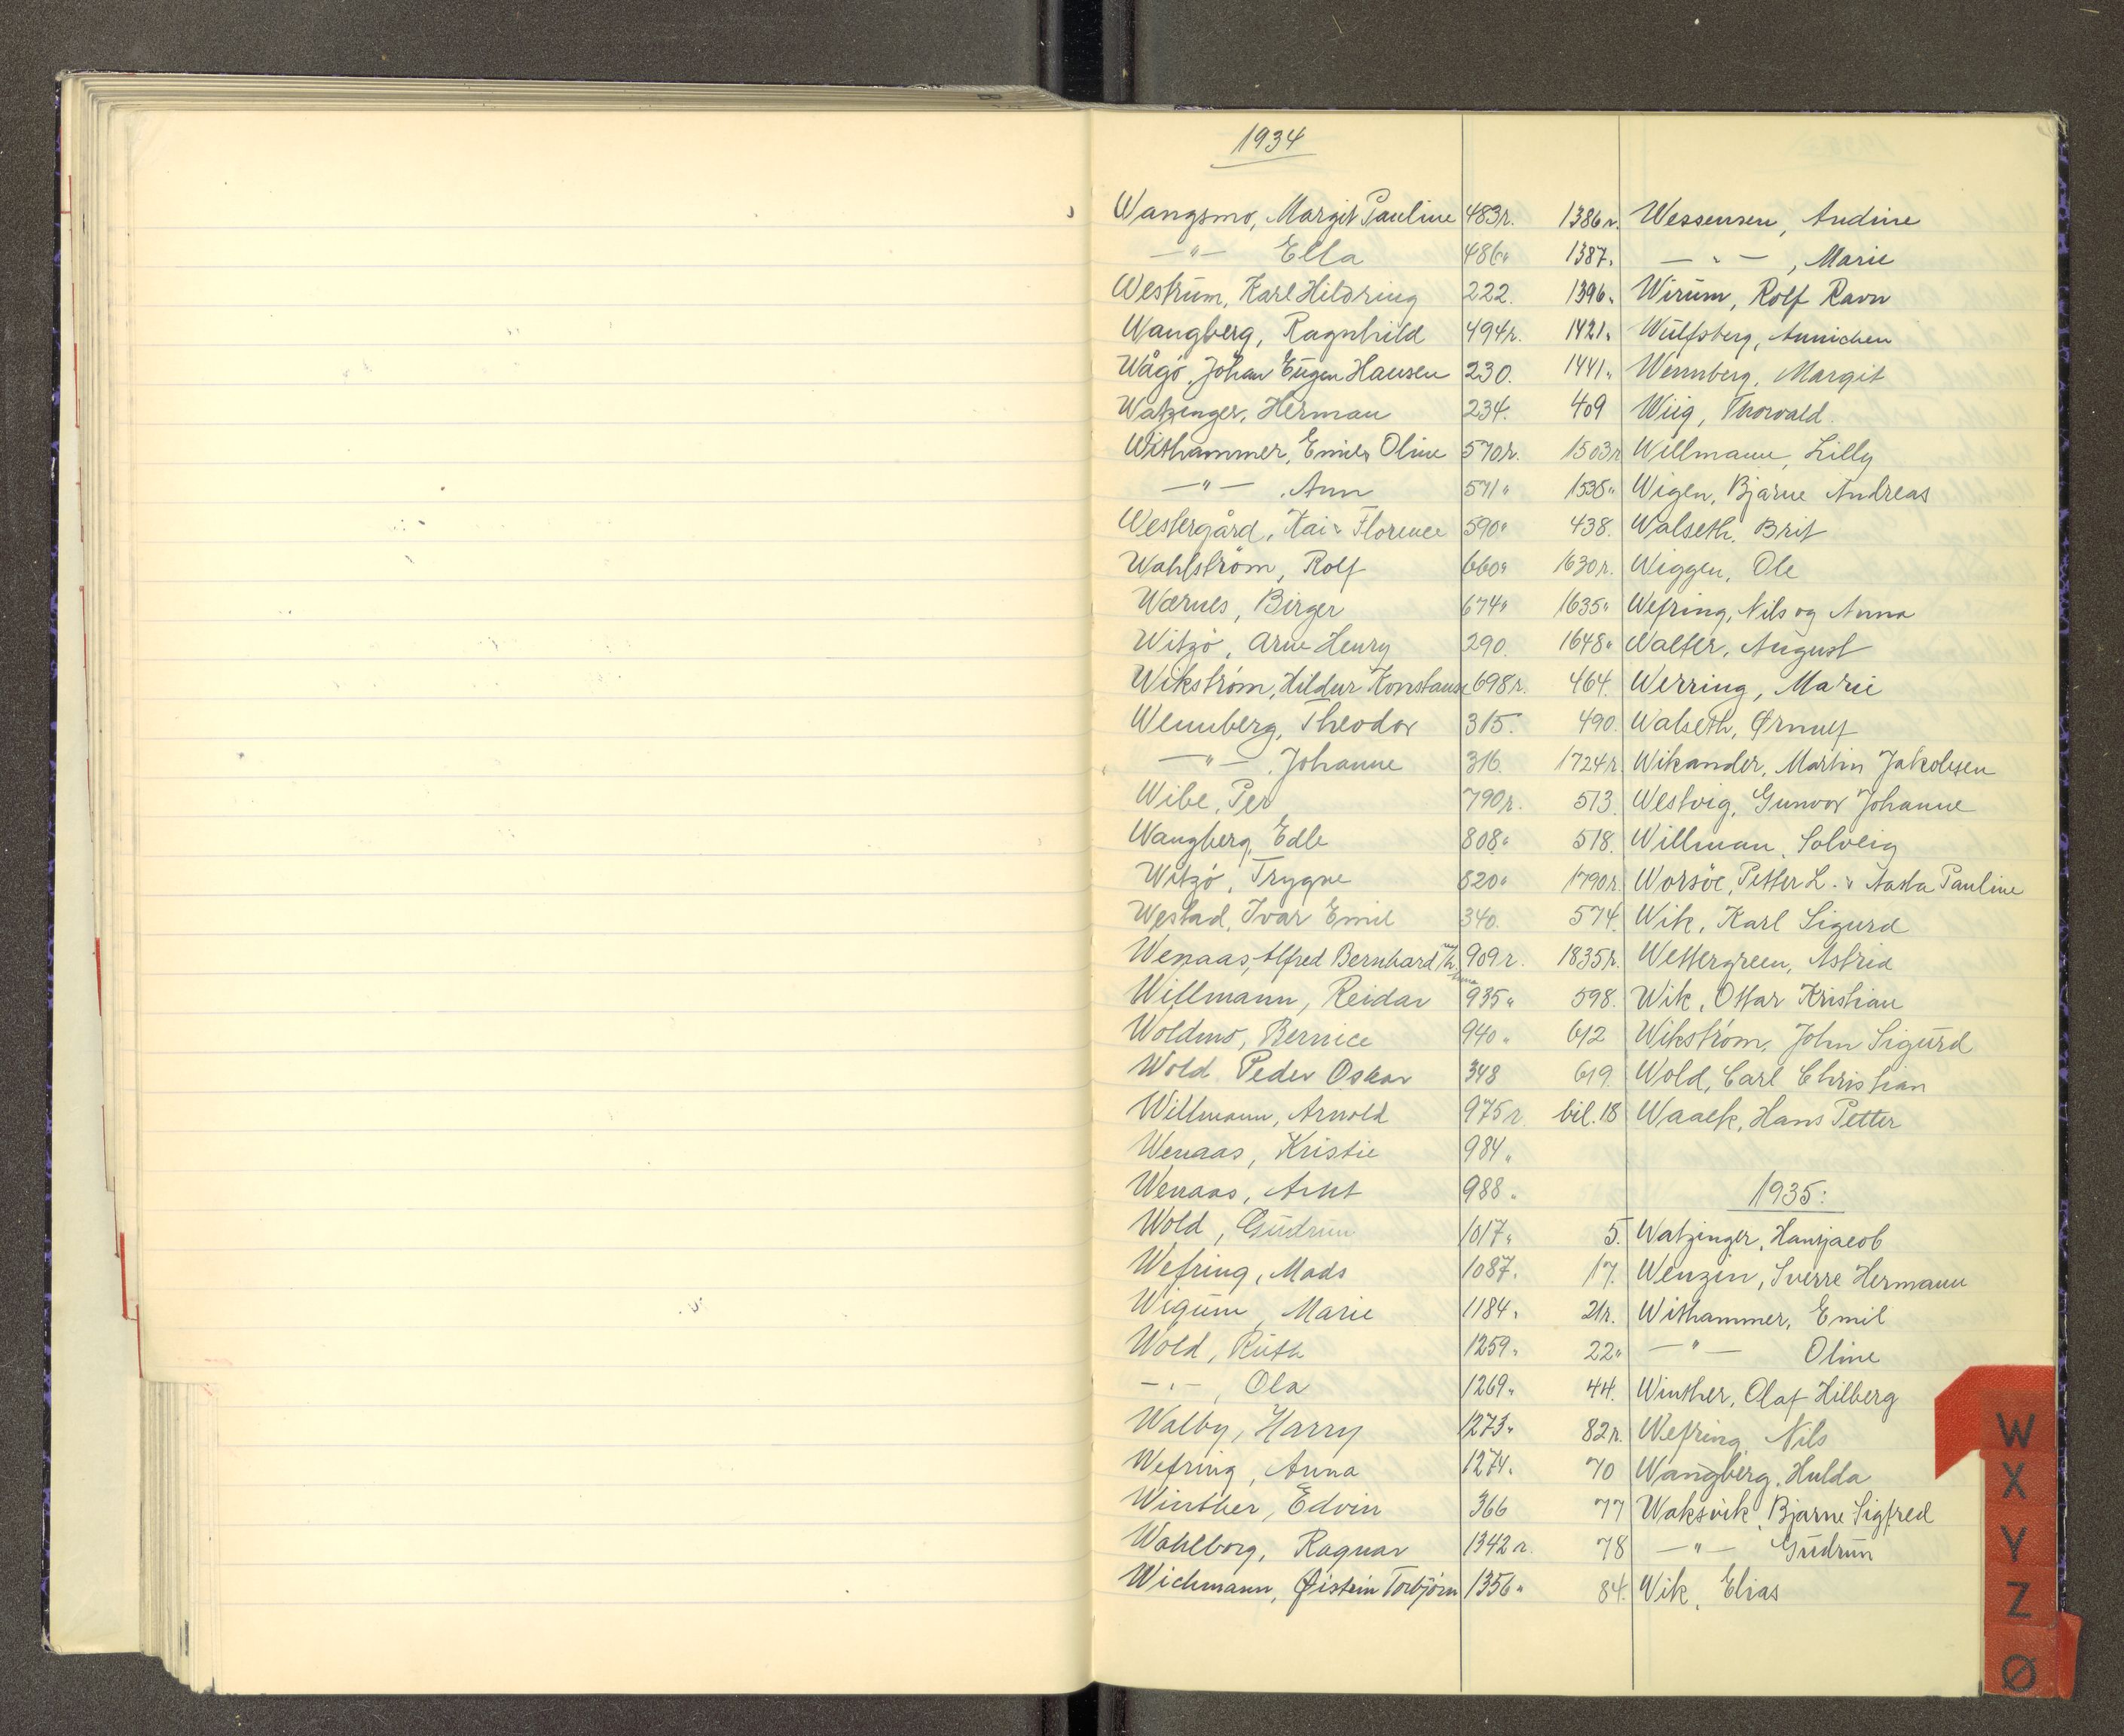 1934
Wangsmo, Margit Pauline 483r.
—"— Ella 486"
Westrum, Karl Hildring 222.
Wangberg, Ragnhild 494r.
Wågø, Johan Eugen Hansen 230.
Watzinger, Herman 234.
Withammer, Emil & Oline 570r.
—"— , Ann 571"
Westergård, Kai & Florence 590"
Wahlström, Rolf 660"
Wærnes, Birger 674"
Witzø, Arne Henry 290.
Wikstrøm, Hildur Konstanse 698r.
Wennberg, Theodor 315.
—"— , Johanne 316.
Wibe, Per 790r.
Wangberg, Edle 808"
Witzø, Trygve 820"
Westad, Ivar Emil 340.
Wenaas, Alfred Bernhard 909r.
Willmann, Reidar 935"
Woldmo, Bernice 940"
Wold Peder Oskar 348
Willmann, Arnold 975r.
Wenaas, Kristie 984"
Wenaas, Arnt 988"
Wold, Gudrun 1017"
Wefring, Mads 1087"
Wigum, Marie 1184"
Wold, Ruth 1259"
—"— , Ola 1269"
Walby, Harry 1273"
Wefring, Anna 1274"
Winther, Edvin 366
Wahlborg, Ragnar 1342r.
Wichmann, Øistein Torbjørn 1356"
1386r. Wessensen, Andine
1387" —"— , Marie
1396" Wirum, Rolf Ravn
1421" Wulfsberg, Annichen
1441" Wennberg, Margit
409 Wiig, Thorvald.
1503r Willmann, Lilly
1535" Wigen, Bjarne Andreas
438. Walseth, Brit
1630r. Wiggen, Ole
1635" Wefring, Nils og Anna
1648" Walter, August
464. Werring, Marie
490. Walseth, Ørnulf
1724r. Wikander, Martin Jakobsen
513. Westvig, Gunvor Johanne
518. Willman, Solveig
1790r. Worsøe, Petter L. & Aasta Pauline
574. Wik, Karl Sigurd
1835r. Wettergreen, Astrid
598. Wik, Ottar Kristian
612 Wikstrøm, John Sigurd
619. Wold, Carl Christian
bil. 18 Waalk, Hans Petter
1935:
5. Watzinger, Hansjacob
17. Wenzin, Sverre Hermann
21r. Withammer, Emil
22" —"— Oline
44. Winther, Olaf Hilberg
82r. Wefring, Nils
70 Wangberg, Hulda
77 Waksvik, Bjarne Sigfred
78 —"— Gudrun
84. Wik, Elias
W
X
Y
Z
Ø